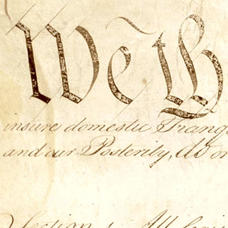 We th
insure domestic Tranq
and our Posterity, do or
Section 1. All